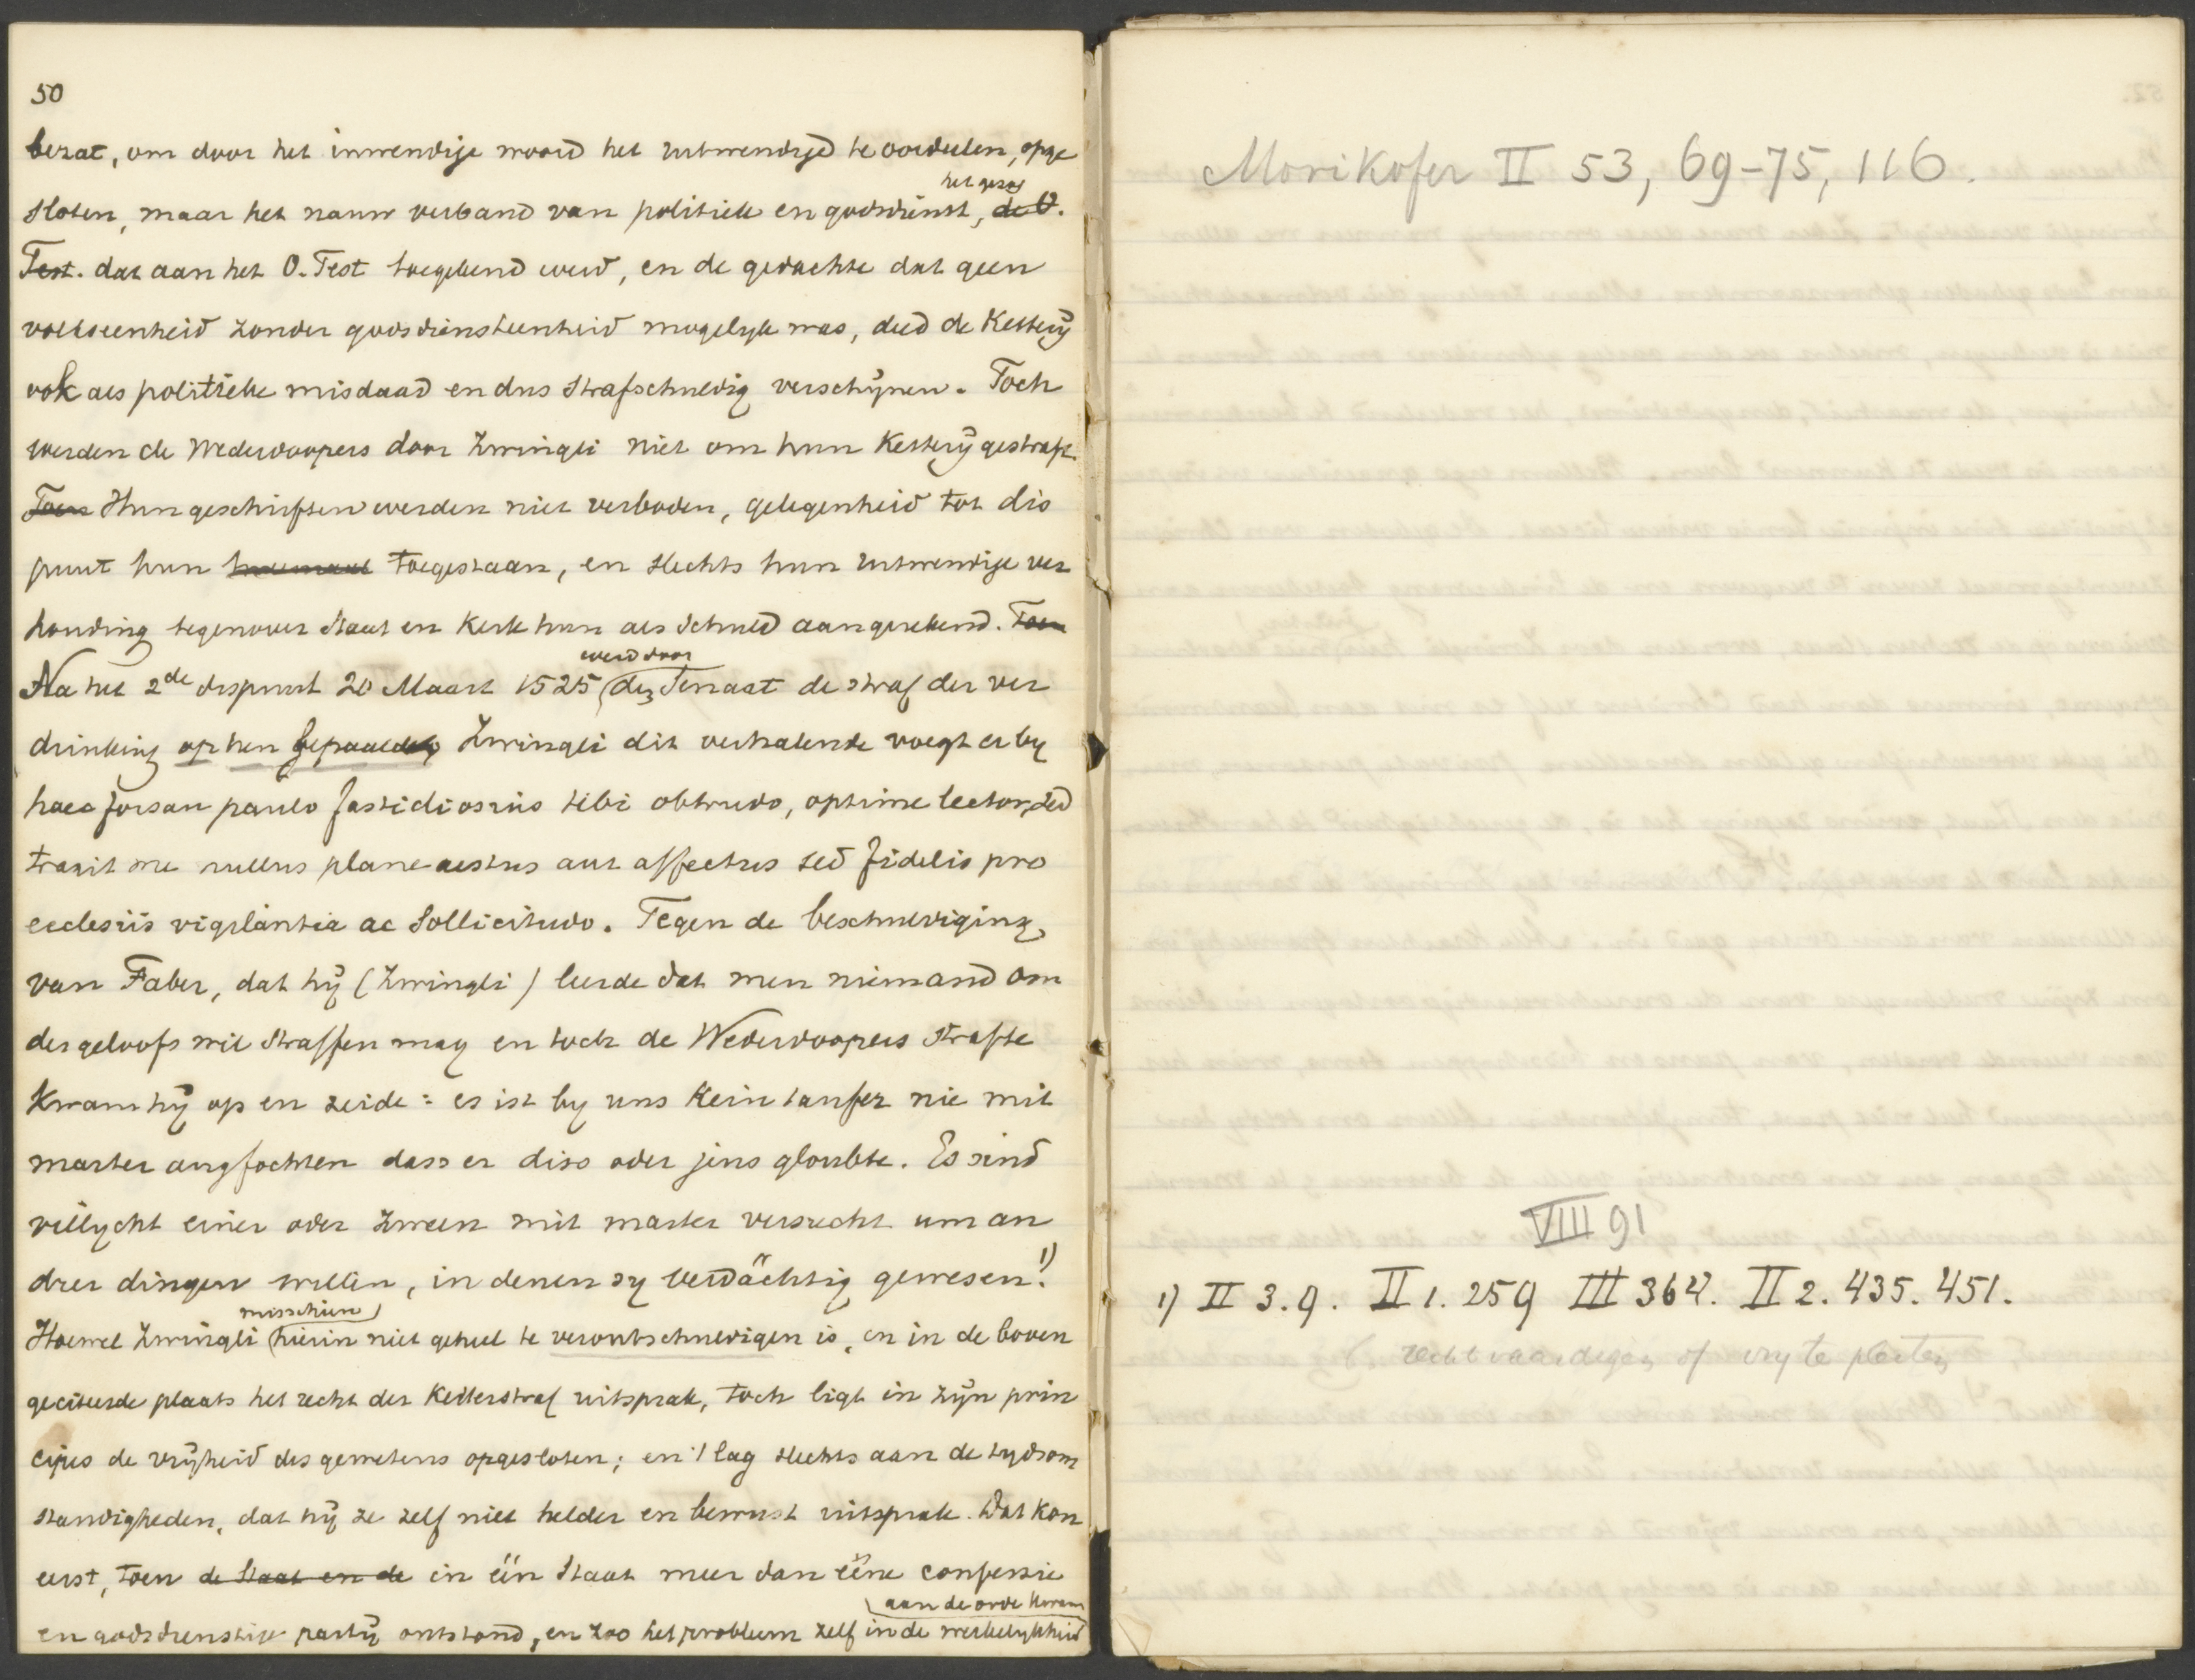 50
bezat, om door het inwendige woord het uitwendige te oordeelen, opge
sloten, maar het nauw verband van politiek en godsdienst, het gezag de O.
Test. dat aan het O. Test toegekend werd, en de gedachte dat geen
volkseenheid zonder godsdiensteenheid mogelyk was, deed de Ketterij
ook als politieke misdaad en dus strafschuldig verschijnen. Toch
werden de Wederdoopers door Zwingli niet om hun Ketterij gestraft.
Toen Hun geschriften werden niet verboden, gelegenheid tot dis
puut hun toegestaan, en slechts hun uitwendige ver
houding tegenover Staat en Kerk hun als schuld aangerekend. Toen
Na het 2de dispuut 20 Maart 1525 werd door den Senaat de straf der ver
drinking op hen bepaald. Zwingli dit verhalende voegt er by
haec forsan paulo fastidiosius tibi obtrudo, optime lector, sed
traxit me nullus plane aestus aut affectus sed fidelis pro
ecclesiis vigilantia ac sollicitudo. Tegen de beschuldiging
van Faber, dat hij (Zwingli) leerde dat men niemand om
des geloofs wil straffen mag en toch de Wederdoopers strafte
Kwam hij op en zeide: es ist by uns Kein taufer nie mit
marter angfochten dass er diss oder jens gloubte. Es sind
villycht einer oder zween mit marter versucht um an
drer dingen willen, in denen sy verdächtig gewesen! 1)
Hoewel Zwingli misschien hierin niet geheel te verontschuldigen is, en in de boven
geciteerde plaats het recht der Ketterstraf uitsprak, toch ligt in zijn prin
cipes de vrijheid des gewetens opgesloten; en 't lag slechts aan de tydsom
standigheden, dat hij ze zelf niet helder en bewust uitsprak. Dat kon
eerst, toen de Staat en de in één Staat meer dan ééne confessie
en godsdienstige partij ontstond, en zoo het probleem zelf in de werkelykheid aan de orde kwam
Morikofer II 53, 69-75, 116.
VIII 91
1) II 3. 9. II 1. 259 III 364. II 2. 435. 451.
rechtvaardigen of vry te pleiten